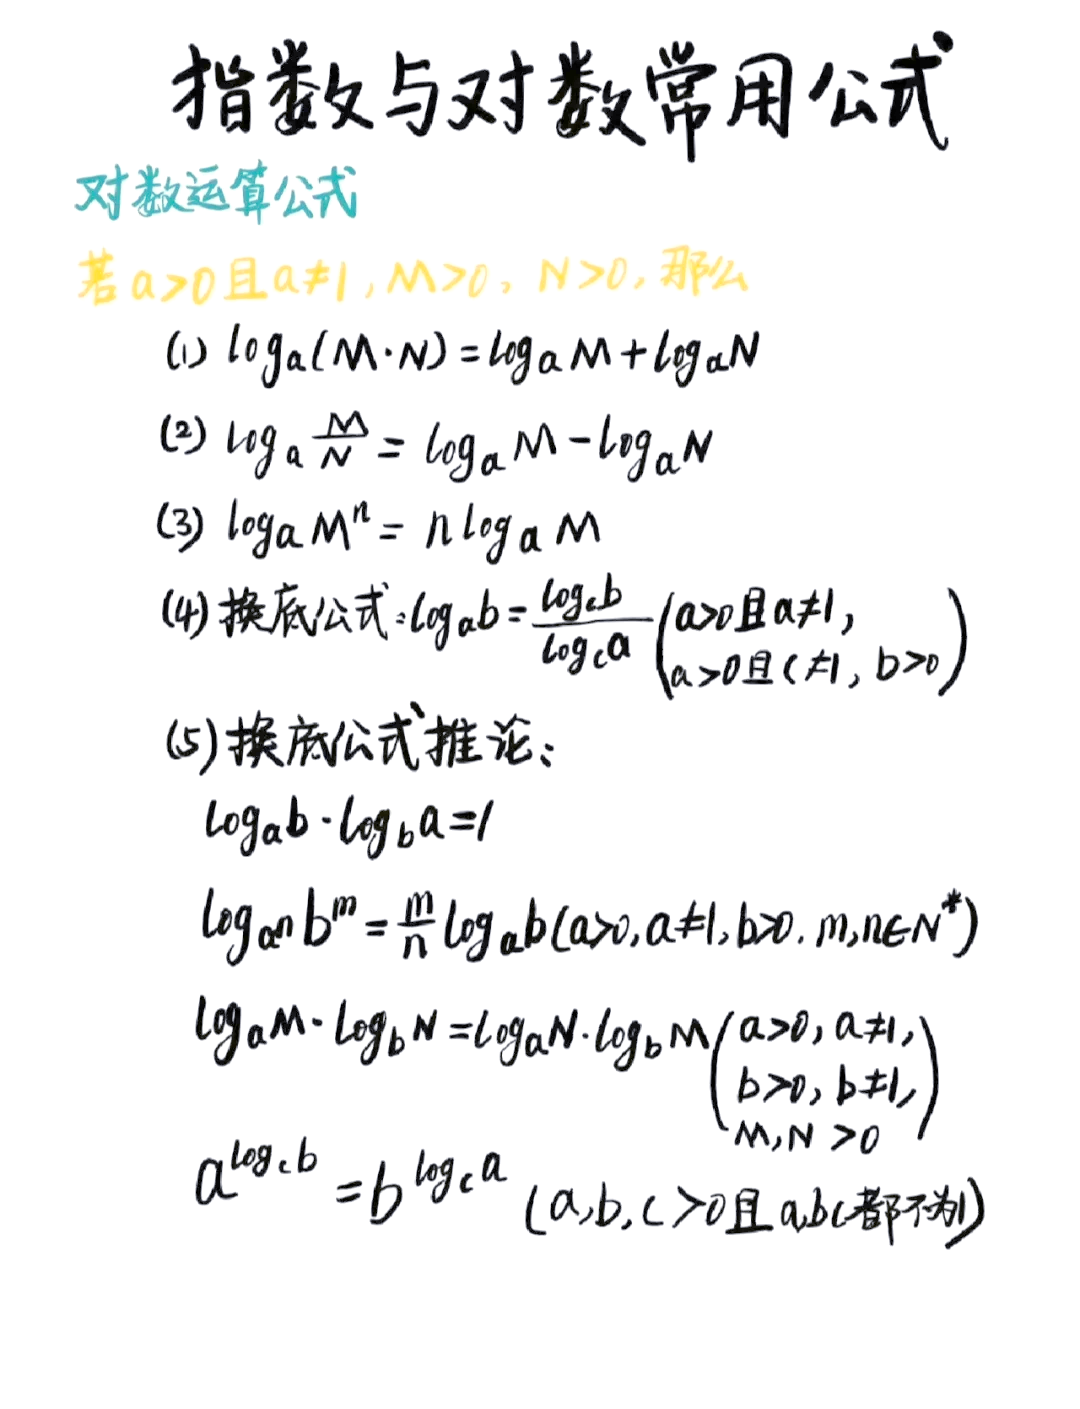 指数与对数常用公式
对数运算公式
若a>0且a≠1,M>0,N>0,那么
(1) logₐ(M·N)=logₐM+logₐN
(2) logₐ M/N = logₐM-logₐN
(3) logₐMⁿ= nlogₐM
(4)换底公式:logₐb= log_c b / log_c a (a>0且a≠1,
a>0且c≠1, b>0)
(5)换底公式推论:
logₐb·log_b a=1
log_{aⁿ} bᵐ = m/n logₐb(a>0,a≠1,b>0.m,n∈N*)
logₐM·log_b N=logₐN·log_b M(a>0,a≠1,
b>0,b≠1,
M,N>0)
a^{log_c b} = b^{log_c a} (a,b,c>0且a,bc都不为1)